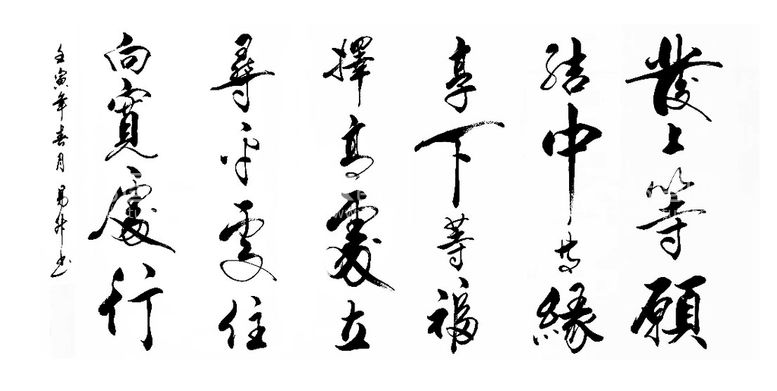 發上等願
結中等緣
享下等福
擇高處立
尋平處住
向寬處行
壬寅年春月易升书